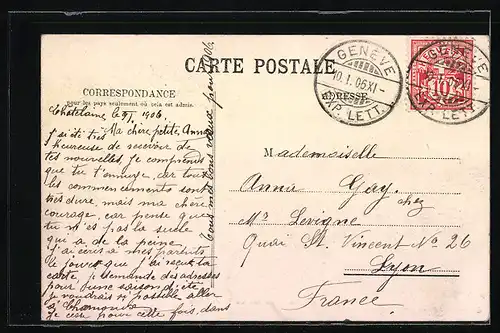 CARTE POSTALE
CORRESPONDANCE
pour les pays seulement où cela est admis.
ADRESSE
GENÈVE
10.I.06 XI-
EXP. LETT.
GENÈVE
EXP. LETT.
10
Chatelaine le 9/I 1906
Ma chère petite Anna
J'ai été très
heureuse de recevoir de
tes nouvelles, je comprends
que tu t'ennuye, car tous
les commencements sont
très dure, mais ma chère
courage, car pense que
tu n'es pas la seule
qui a de la peine
J'ai écris à mes parents
le jour que j'ai reçu ta
carte, je demande des adresses
pour une saison d'été
je voudrais si possible aller
a Chamonix
Je cesse pour cette fois, dans
Tous mes bons vœux pour 1906.
Mademoiselle
Annie Gay.
chez
Mr Levigne
Quai St. Vincent No 26
Lyon
France